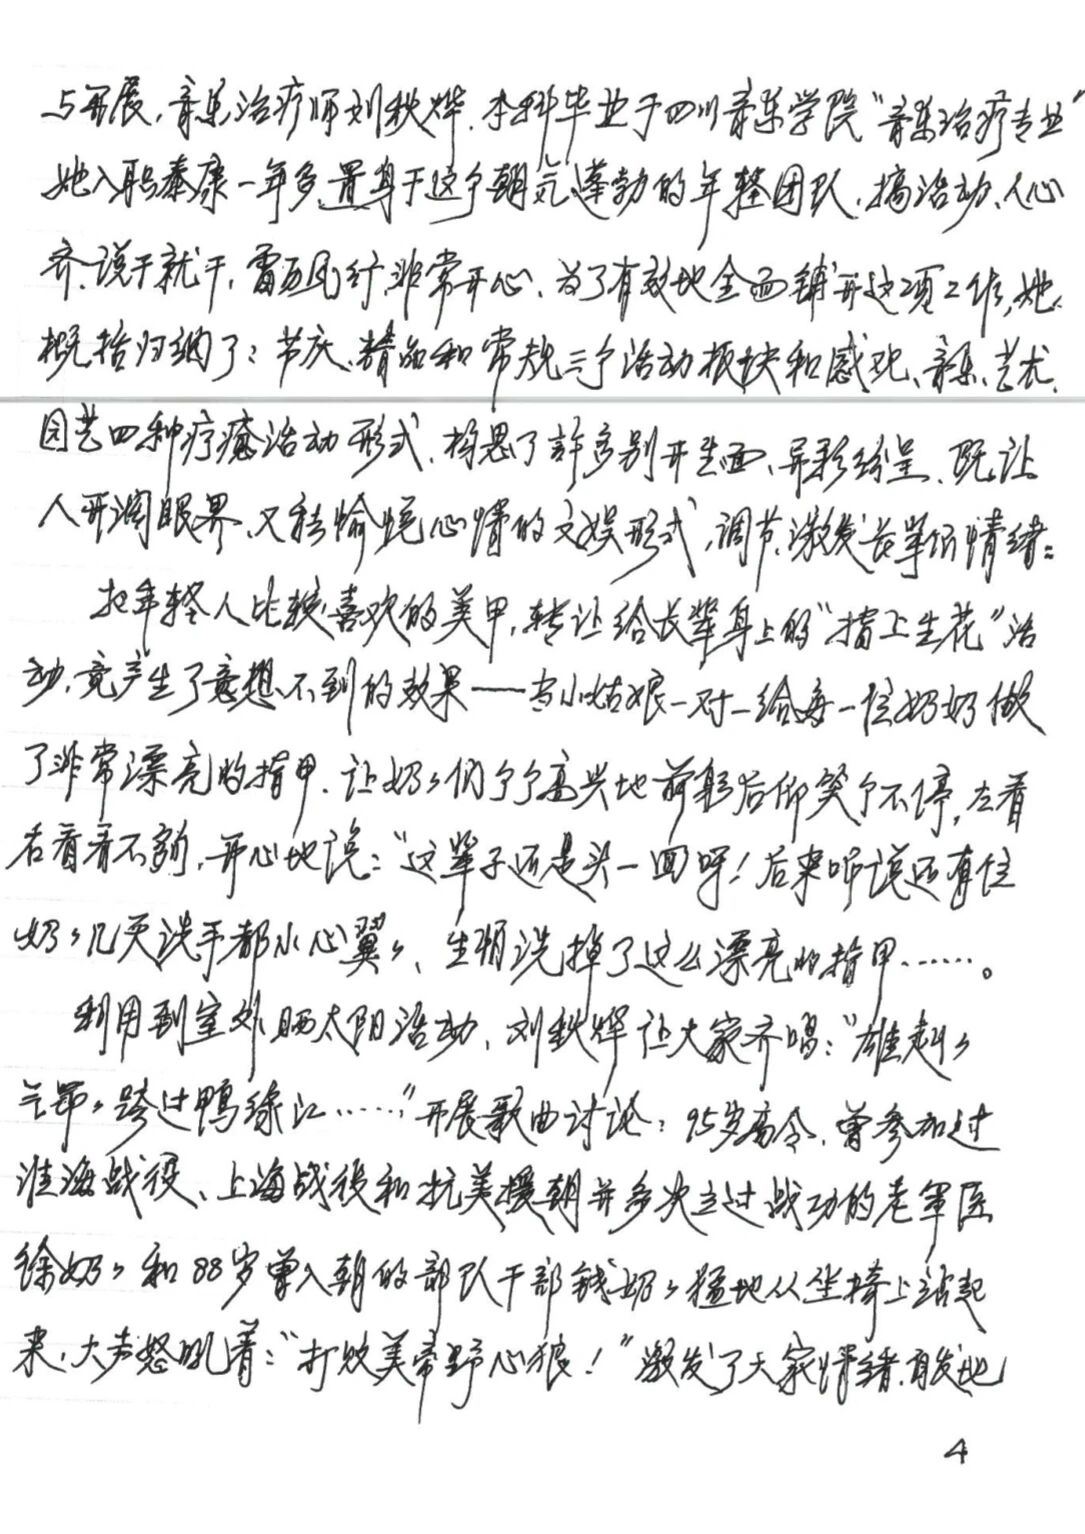 与开展，音乐治疗师刘秋烨，本科毕业于四川音乐学院“音乐治疗专业”
她入职泰康一年多，置身于这个朝气蓬勃的年轻团队，搞活动、人心
齐、说干就干，雷厉风行，非常开心。为了有效地全面铺开这项工作，她
概括归纳了：节庆、精品和常规三个活动板块和感观、音乐、艺术、
园艺四种疗癒活动形式，构思了許多别开生面、异彩纷呈、既让
人开阔眼界、又能愉悦心情的文娱形式，调节、激发长辈们情绪：
把年轻人比较喜欢的美甲，转让给长辈身上的“指上生花”活
动，竟产生了意想不到的效果——当小姑娘一对一给每一位奶奶做
了非常漂亮的指甲，让奶々们个个高兴地前躬后仰笑个不停，左看
右看看不够，开心地说：“这辈子还是头一回呀！后来听说还有位
奶々几天洗手都小心翼々、生怕洗掉了这么漂亮的指甲……。
利用到室外晒太阳活动，刘秋烨让大家齐唱：“雄赳々
气昂々跨过鸭绿江……”开展歌曲讨论：95岁高令，曾参加过
淮海战役、上海战役和抗美援朝并多次立过战功的老军医
徐奶々和88岁曾入朝的部队干部钱奶々猛地从坐椅上站起
来，大声怒吼着：“打败美帝野心狼！”激发了大家情绪，自发地
4